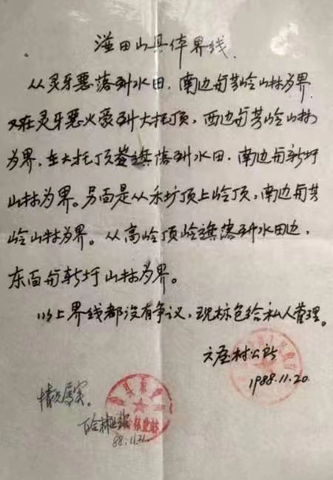 溢田山具体界线
从灵牙恶落到水田，南边与芳岭山林为界
又在灵牙恶火豪到大托顶，西边与芳岭山林
为界，在大托顶岭旗落到水田，南边与新圩
山林为界。另面是从禾坊顶上岭顶，南边与芳
岭山林为界。从高岭顶岭旗落到水田边，
东面与新圩山林为界。
以上界线都没有争议，现标包给私人管理。
村公所
1988.11.20
情况属实。
88.11.21